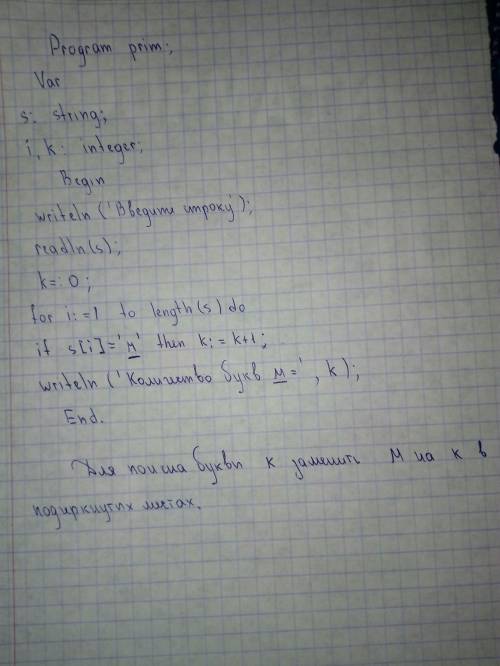 Program prim:,
Var
s: string;
i, k: integer;
Begin
writeln ('Введите строку');
readln(s);
k=: 0;
for i:=1 to length(s) do
if s[i]='м' then k:= k+1;
writeln ('Количество букв м=', k);
End.
Для поиска буквы к заменить м на к в
подчеркнутых местах.